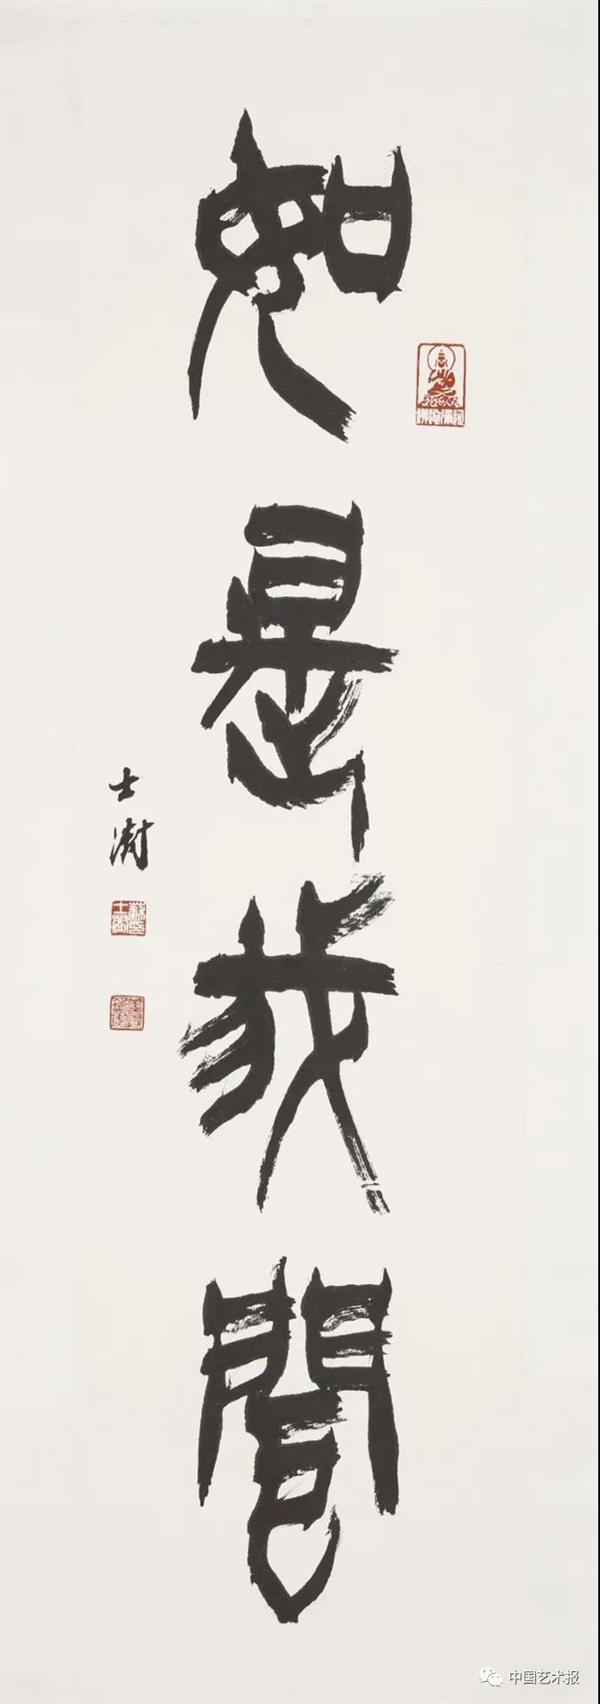 如是我聞
士澍
中国艺术报